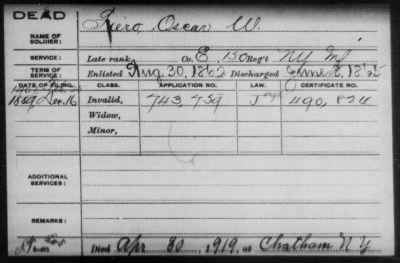 DEAD
NAME OF SOLDIER: Piero, Oscar W.
SERVICE: Late rank, Co. E, 150 Reg't NY Inf
TERM OF SERVICE: Enlisted Aug. 30, 1862 Discharged June 8, 1865
DATE OF FILING. CLASS. APPLICATION NO. LAW. CERTIFICATE NO.
1889, Dec. 16 Invalid, 743,759 490,824
Widow,
Minor,
ADDITIONAL SERVICES:
REMARKS:
Died Apr 30, 1919, at Chatham N Y